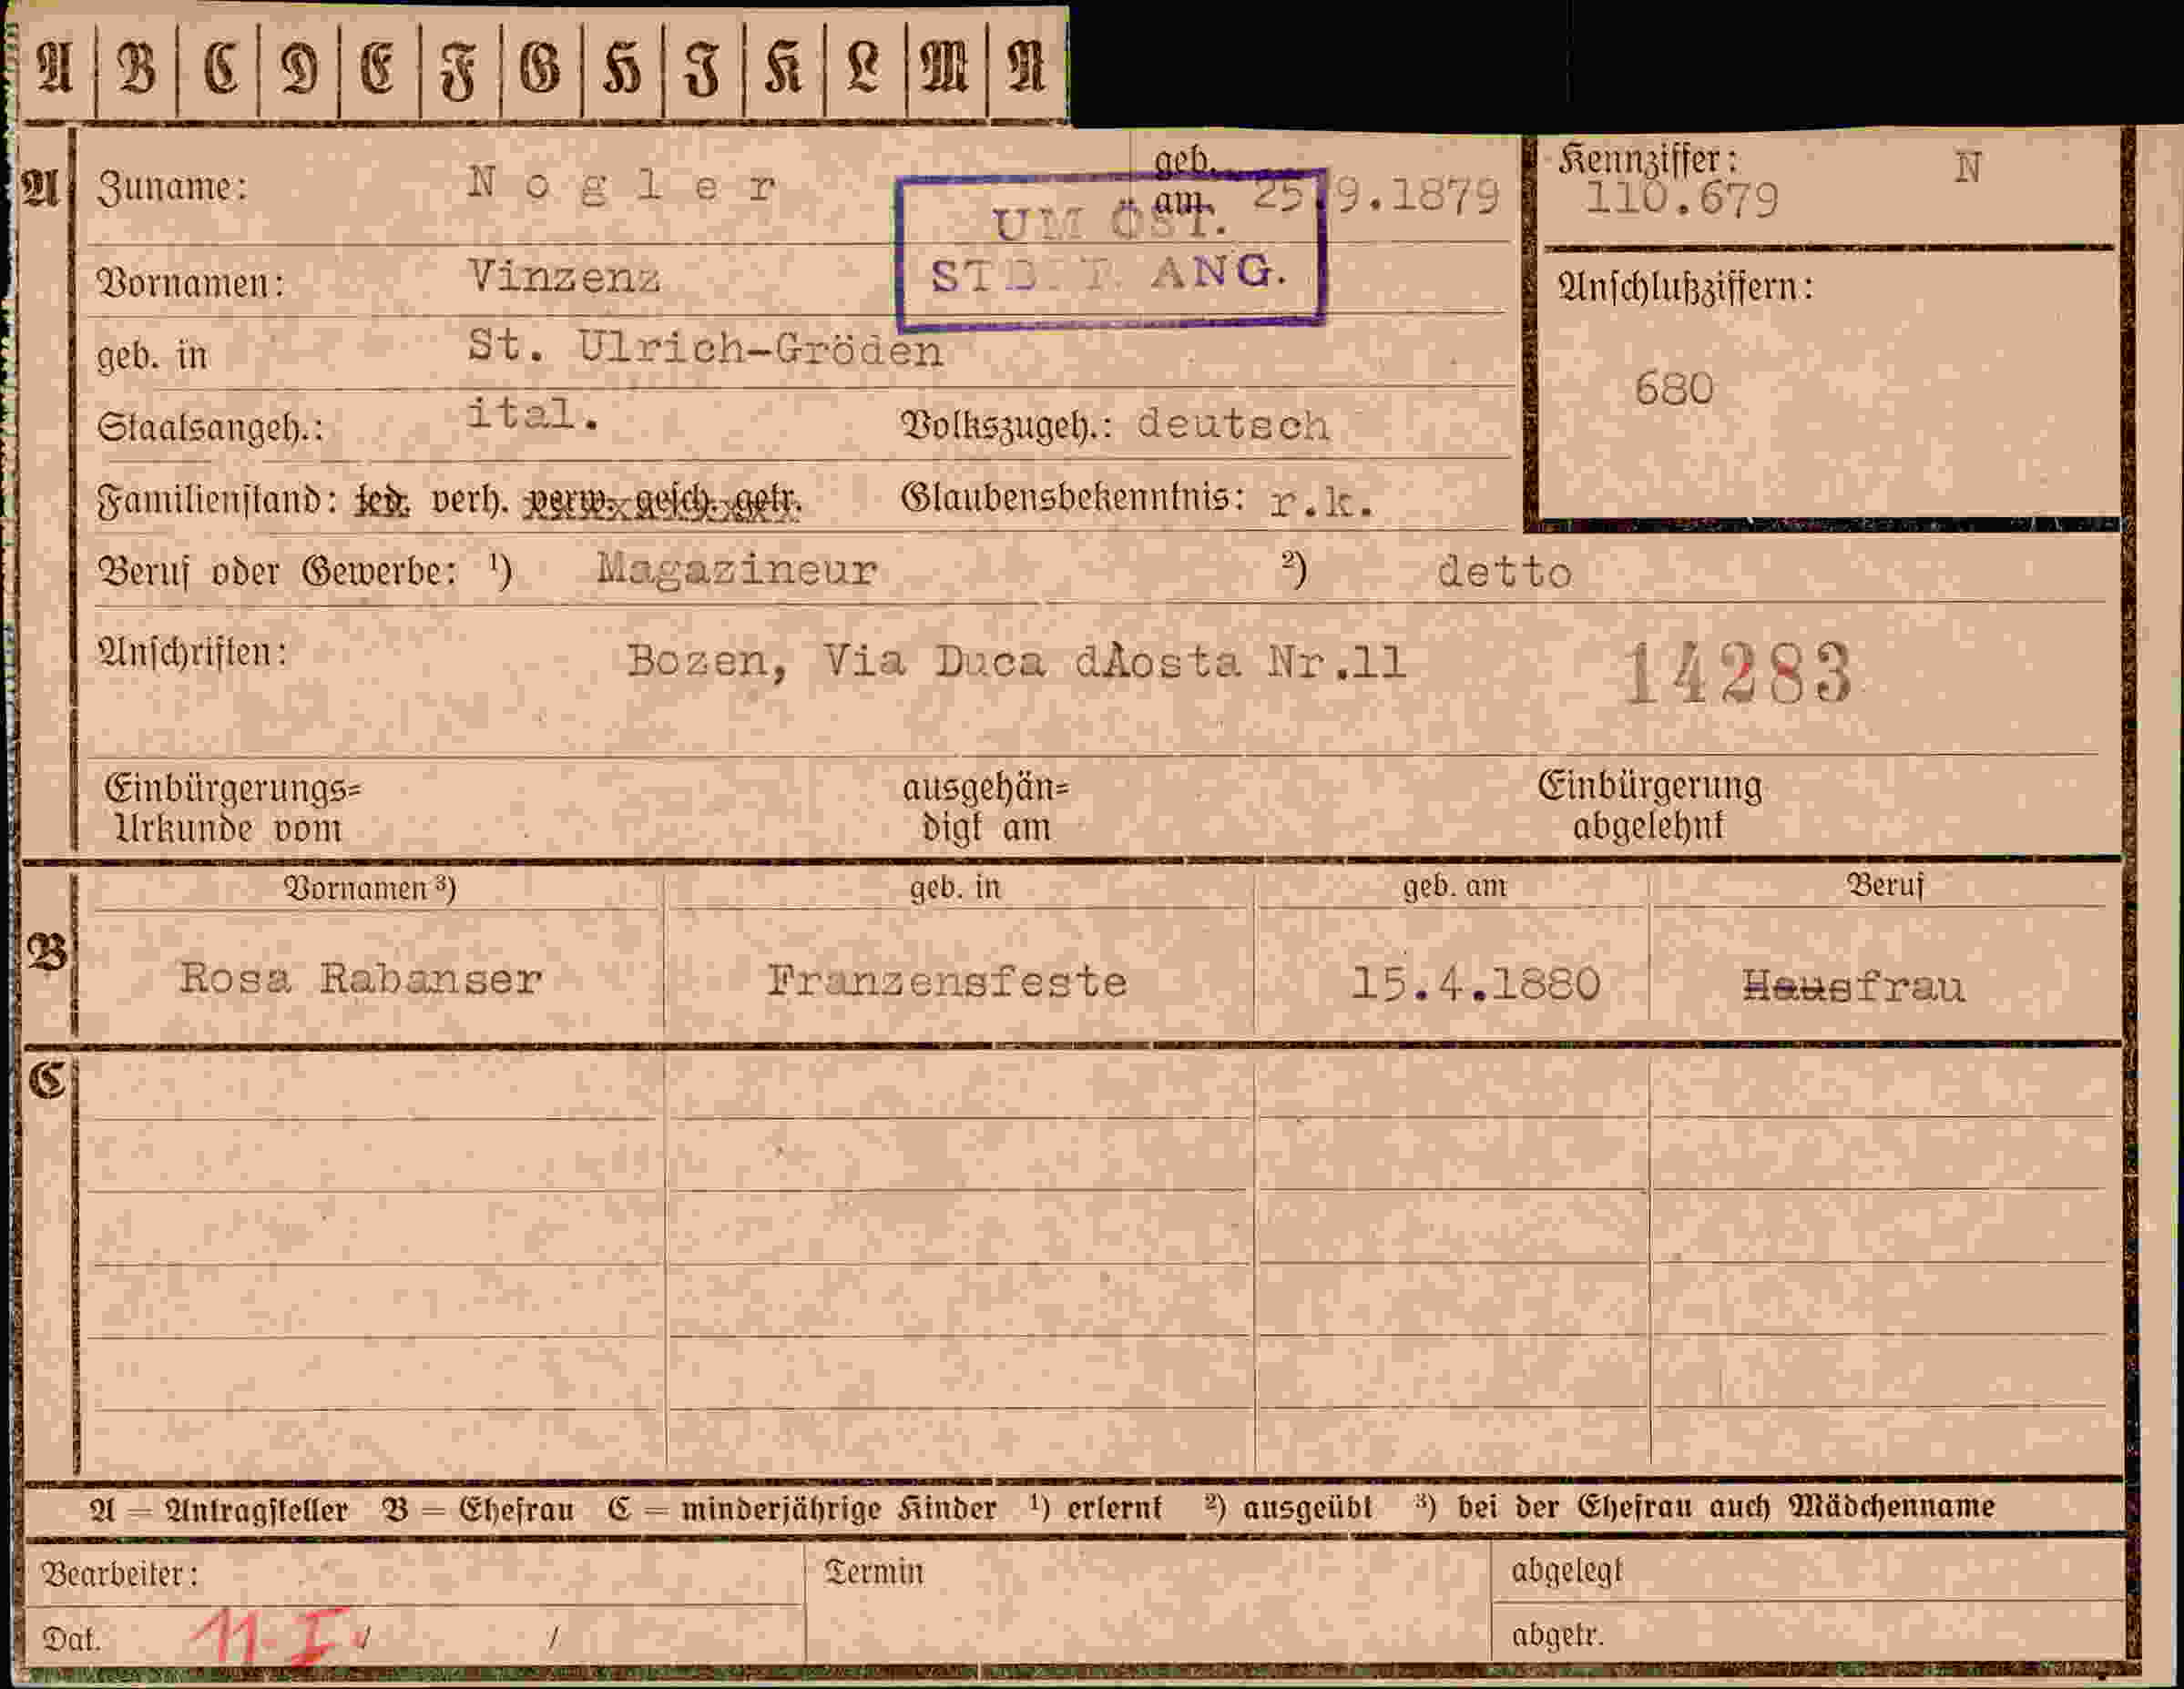 A B C D E F G H I K L M N
A Zuname: Nogler geb. am 25.9.1879 Kennziffer: N
110.679
UM ÖST.
ST ANG.
Vornamen: Vinzenz Anschlußziffern:
geb. in St. Ulrich-Gröden
680
Staatsangeh.: ital. Volkszugeh.: deutsch
Familienstand: led. verh. verw. gesch. getr. Glaubensbekenntnis: r.k.
Beruf oder Gewerbe: ¹) Magazineur ²) detto
Anschriften: Bozen, Via Duca dAosta Nr.11 14283
Einbürgerungs= ausgehän= Einbürgerung
Urkunde vom digt am abgelehnt
Vornamen ³) geb. in geb. am Beruf
B Rosa Rabanser Franzensfeste 15.4.1880 Hausfrau
C
A = Antragsteller B = Ehefrau C = minderjährige Kinder ¹) erlernt ²) ausgeübt ³) bei der Ehefrau auch Mädchenname
Bearbeiter: Termin abgelegt
Dat. 11. I. / / abgetr.